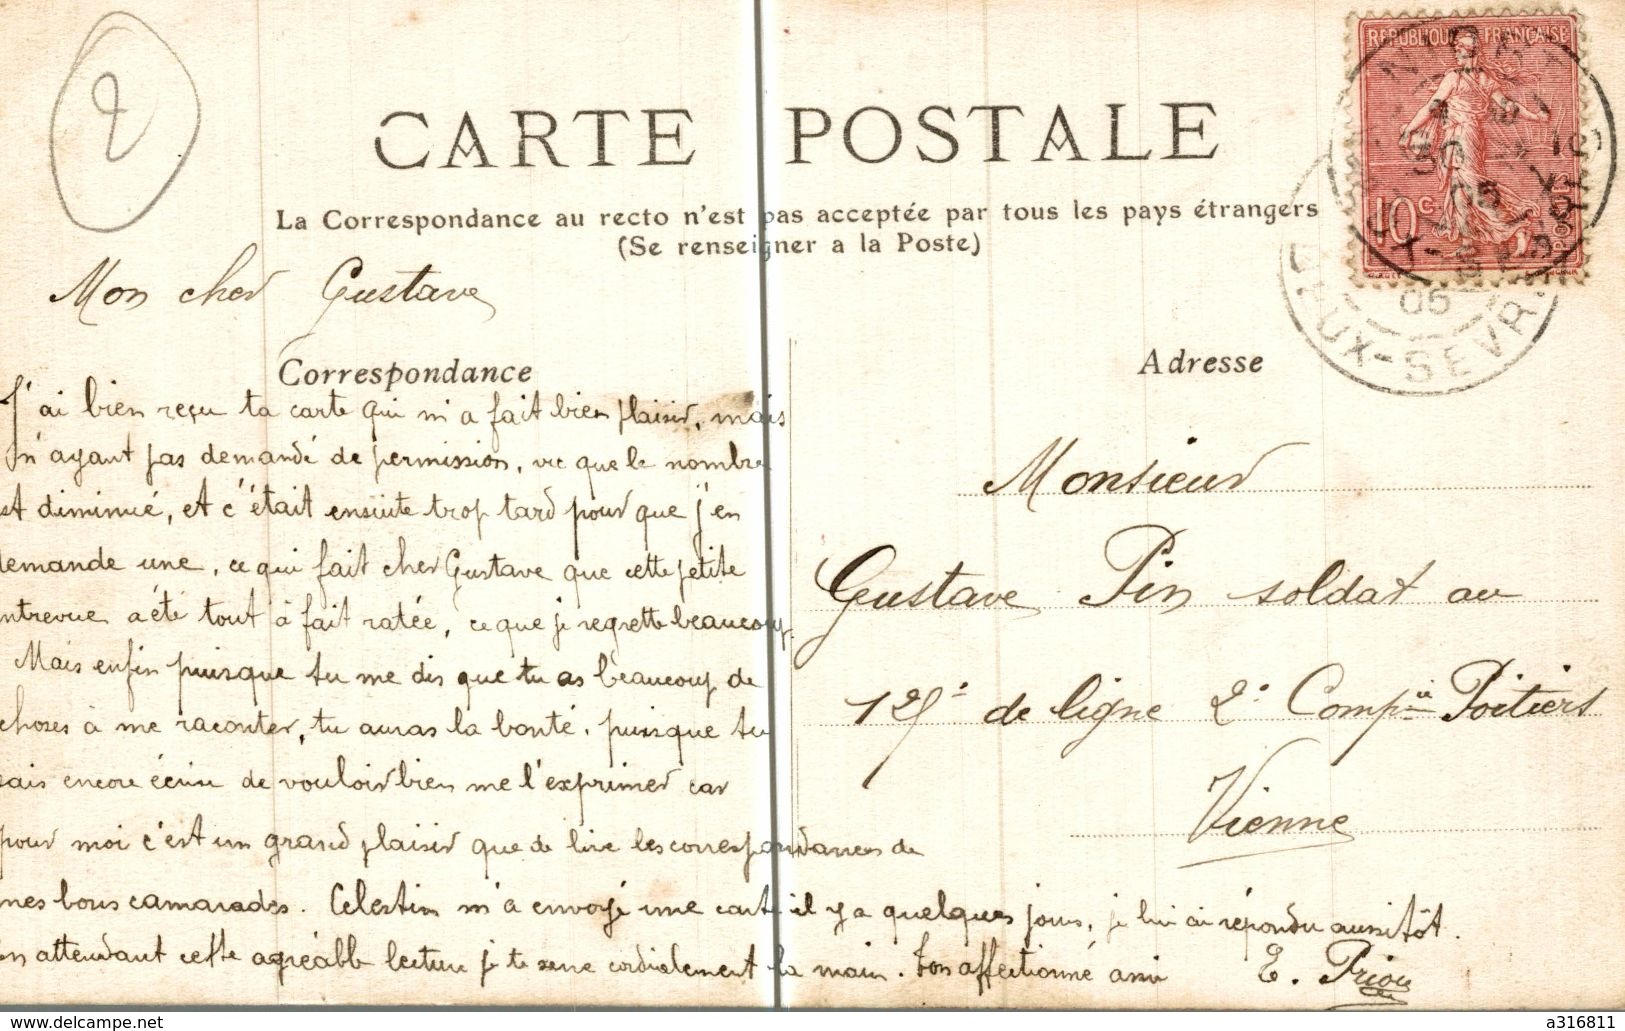 2
CARTE POSTALE
La Correspondance au recto n'est pas acceptée par tous les pays étrangers
(Se renseigner a la Poste)
REPUBLIQUE FRANÇAISE
10 c POSTES
05
EUX-SEVR
Mon cher Gustave
Correspondance
J'ai bien reçu ta carte qui m'a fait bien plaisir, mais
n'ayant pas demandé de permission, vu que le nombre
est diminué, et c'était ensuite trop tard pour que j'en
demande une, ce qui fait cher Gustave que cette petite
entrevue a été tout à fait ratée, ce que je regrette beaucoup.
Mais enfin puisque tu me dis que tu as beaucoup de
choses à me raconter, tu auras la bonté, puisque tu
sais encore écrire de vouloir bien me l'exprimer car
pour moi c'est un grand plaisir que de lire les correspondances de
mes bons camarades. Celestin m'a envoyé une carte il y a quelques jours, je lui ai répondu aussitôt.
En attendant cette agréable lecture je te serre cordialement la main. Ton affectionné ami E. Priou
Adresse
Monsieur
Gustave Pin soldat au
125e de ligne 2e Compnie Poitiers
Vienne
https://www.delcampe.net
a316811